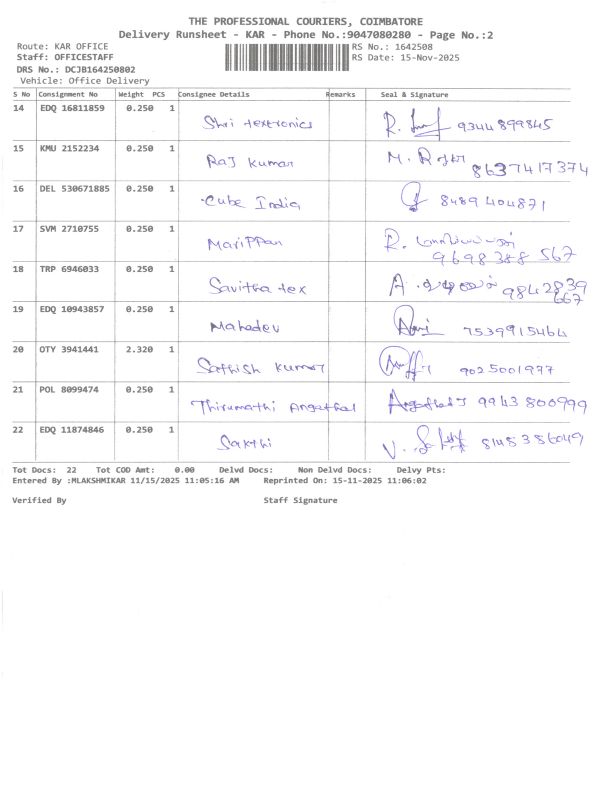 THE PROFESSIONAL COURIERS, COIMBATORE
Delivery Runsheet - KAR - Phone No.:9047080280 - Page No.:2
Route: KAR OFFICE RS No.: 1642508
Staff: OFFICESTAFF RS Date: 15-Nov-2025
DRS No.: DCJB164250802
Vehicle: Office Delivery
S No Consignment No Weight PCS Consignee Details Remarks Seal & Signature
14 EDQ 16811859 0.250 1 Shri textronics 9344899845
15 KMU 2152234 0.250 1 Raj Kumar 8637417374
16 DEL 530671885 0.250 1 Cube India 8489404871
17 SVM 2710755 0.250 1 Marippan R. 9698388 567
18 TRP 6946033 0.250 1 Savitha tex A. 9842839
667
19 EDQ 10943857 0.250 1 Mahadev 7539915464
20 OTY 3941441 2.320 1 Sathish Kumar 9025001977
21 POL 8099474 0.250 1 Thirumathi Angathal 9943800999
22 EDQ 11874846 0.250 1 Sakthi 8145386049
Tot Docs: 22 Tot COD Amt: 0.00 Delvd Docs: Non Delvd Docs: Delvy Pts:
Entered By :MLAKSHMIKAR 11/15/2025 11:05:16 AM Reprinted On: 15-11-2025 11:06:02
Verified By Staff Signature